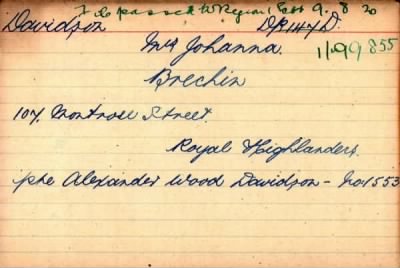 File passed to Region (East 9. 8 20
Davidson DR147D.
Mrs Johanna. 11/99855
Brechin
107. Montrose Street.
Royal Highlanders.
pte Alexander Wood Davidson - No 1553